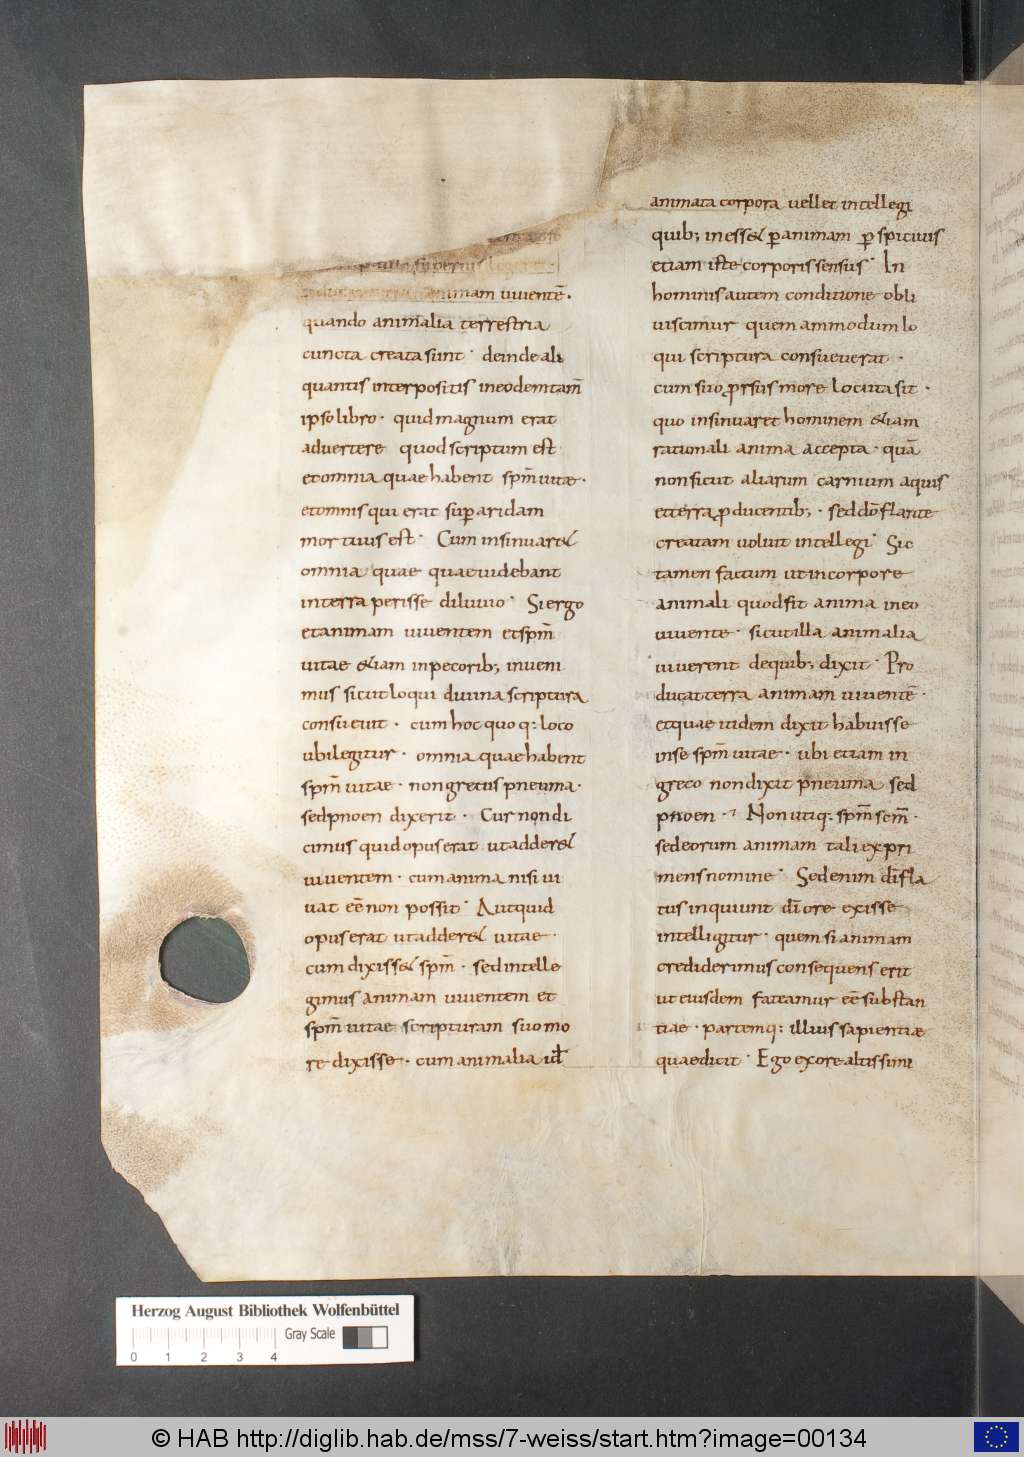 superius
animam uiuentē.
quando animalia terrestria
cuncta creata sunt · deinde ali
quantis interpositis in eodem tam̄
ipso libro · quid magnum erat
advertere quod scriptum est
et omnia quae habent spm̄ uitae ·
et omnis qui erat sup aridam
mortuus est · Cum insinuar&
omnia quae quae uidebant
in terra perisse diluuio · Si ergo
et animam uiuentem et spm̄
uitae &iam in pecorib; inueni
mus sicut loqui diuina scriptura
consueuit · cum hoc quo q: loco
ubi legitur · omnia quae habent
spm̄ uitae · non grecus pneuma ·
sed pnoen dixerit · Cur non di
cimus quid opus erat ut adder&
uiuentem · cum anima nisi ui
uat eē non possit · Aut quid
opus erat ut adder& uitae ·
cum dixiss& spm̄ · sed intelle
gimus animam uiuentem et
spm̄ uitae scripturam suo mo
re dixisse · cum animalia ul̄
animata corpora uellet intellegi
quib; iness& p animam p spicuus
etiam iste corporis sensus · In
hominis autem conditione obli
uiscimur quem ammodum lo
qui scriptura consueuerat ·
cum suo prsus more locuta sit ·
quo insinuaret hominem &iam
rationali anima accepta · quā
non sicut aliarum carnium aquis
et terra p ducentib; · sed dō flante
creatam uoluit intellegi · Sic
tamen factum ut in corpore
animali quod fit anima in eo
uiuente · sicut illa animalia
uiuerent de quib; dixit · Pro
ducat terra animam uiuentē ·
et quae itidem dixit habuisse
in se spm̄ uitae · ubi etiam in
greco non dixit pneuma sed
pnoen · Non utiq: spm̄ scm̄ ·
sed eorum animam tali expri
mens nomine · Sed enim dī fla
tus inquiunt dī ore exisse
intelligitur · quem si animam
crediderimus consequens erit
ut eiusdem fateamur eē substan
tiae · paremq: illius sapientiae
quae dicit · Ego ex ore altissimi
Herzog August Bibliothek Wolfenbüttel
Gray Scale
0 1 2 3 4
© HAB http://diglib.hab.de/mss/7-weiss/start.htm?image=00134